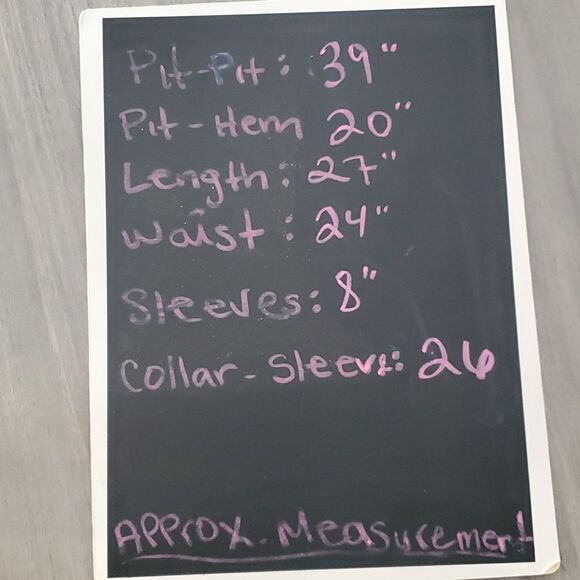 Pit-Pit: 39"
Pit-Hem 20"
Length: 27"
Waist: 24"
Sleeves: 8"
Collar-Sleeve: 26
Approx. Measurement